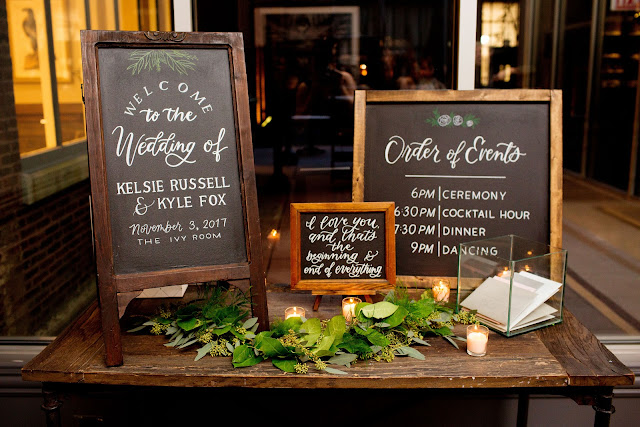 WELCOME
to the
Wedding of
KELSIE RUSSELL
& KYLE FOX
november 3, 2017
THE IVY ROOM
I love you
and that's
the
beginning &
end of everything
Order of Events
6PM | CEREMONY
6:30PM | COCKTAIL HOUR
7:30PM | DINNER
9PM | DANCING